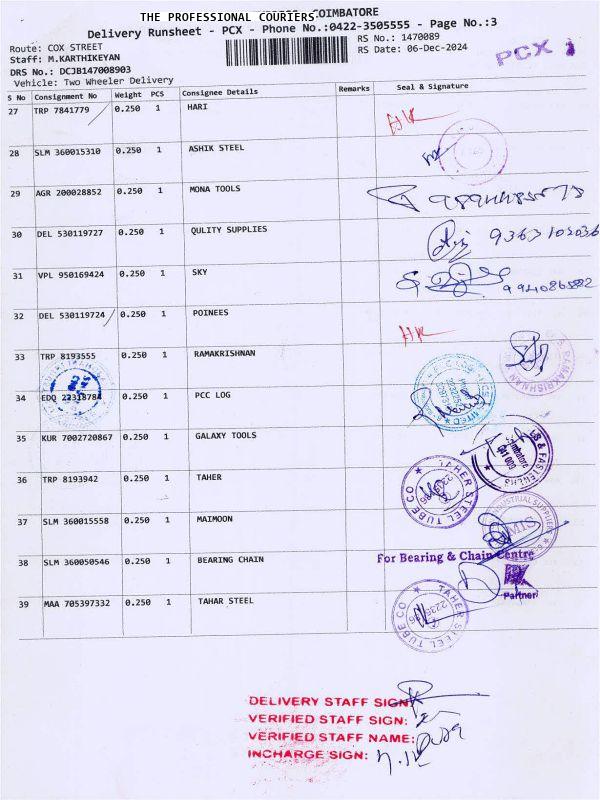 THE PROFESSIONAL COURIERS - COIMBATORE
Delivery Runsheet - PCX - Phone No.:0422-3505555 - Page No.:3
Route: COX STREET
RS No.: 1470089
Staff: M.KARTHIKEYAN
RS Date: 06-Dec-2024
DRS No.: DCJB147008903
Vehicle: Two Wheeler Delivery
PCX
S No Consignment No Weight PCS Consignee Details Remarks Seal & Signature
27 TRP 7841779 0.250 1 HARI HK
28 SLM 360015310 0.250 1 ASHIK STEEL
29 AGR 200028852 0.250 1 MONA TOOLS
30 DEL 530119727 0.250 1 QULITY SUPPLIES
31 VPL 950169424 0.250 1 SKY
32 DEL 530119724 0.250 1 POINEES HK
33 TRP 8193555 0.250 1 RAMAKRISHNAN RAMAKRISHNAN
34 EDQ 22318784 0.250 1 PCC LOG
35 KUR 7002720867 0.250 1 GALAXY TOOLS
36 TRP 8193942 0.250 1 TAHER TAHER STEEL TUBE CO
37 SLM 360015558 0.250 1 MAIMOON
38 SLM 360050546 0.250 1 BEARING CHAIN For Bearing & Chain Centre
Partner
39 MAA 705397332 0.250 1 TAHAR STEEL TAHER STEEL TUBE CO
DELIVERY STAFF SIGN:
VERIFIED STAFF SIGN:
VERIFIED STAFF NAME:
INCHARGE SIGN: